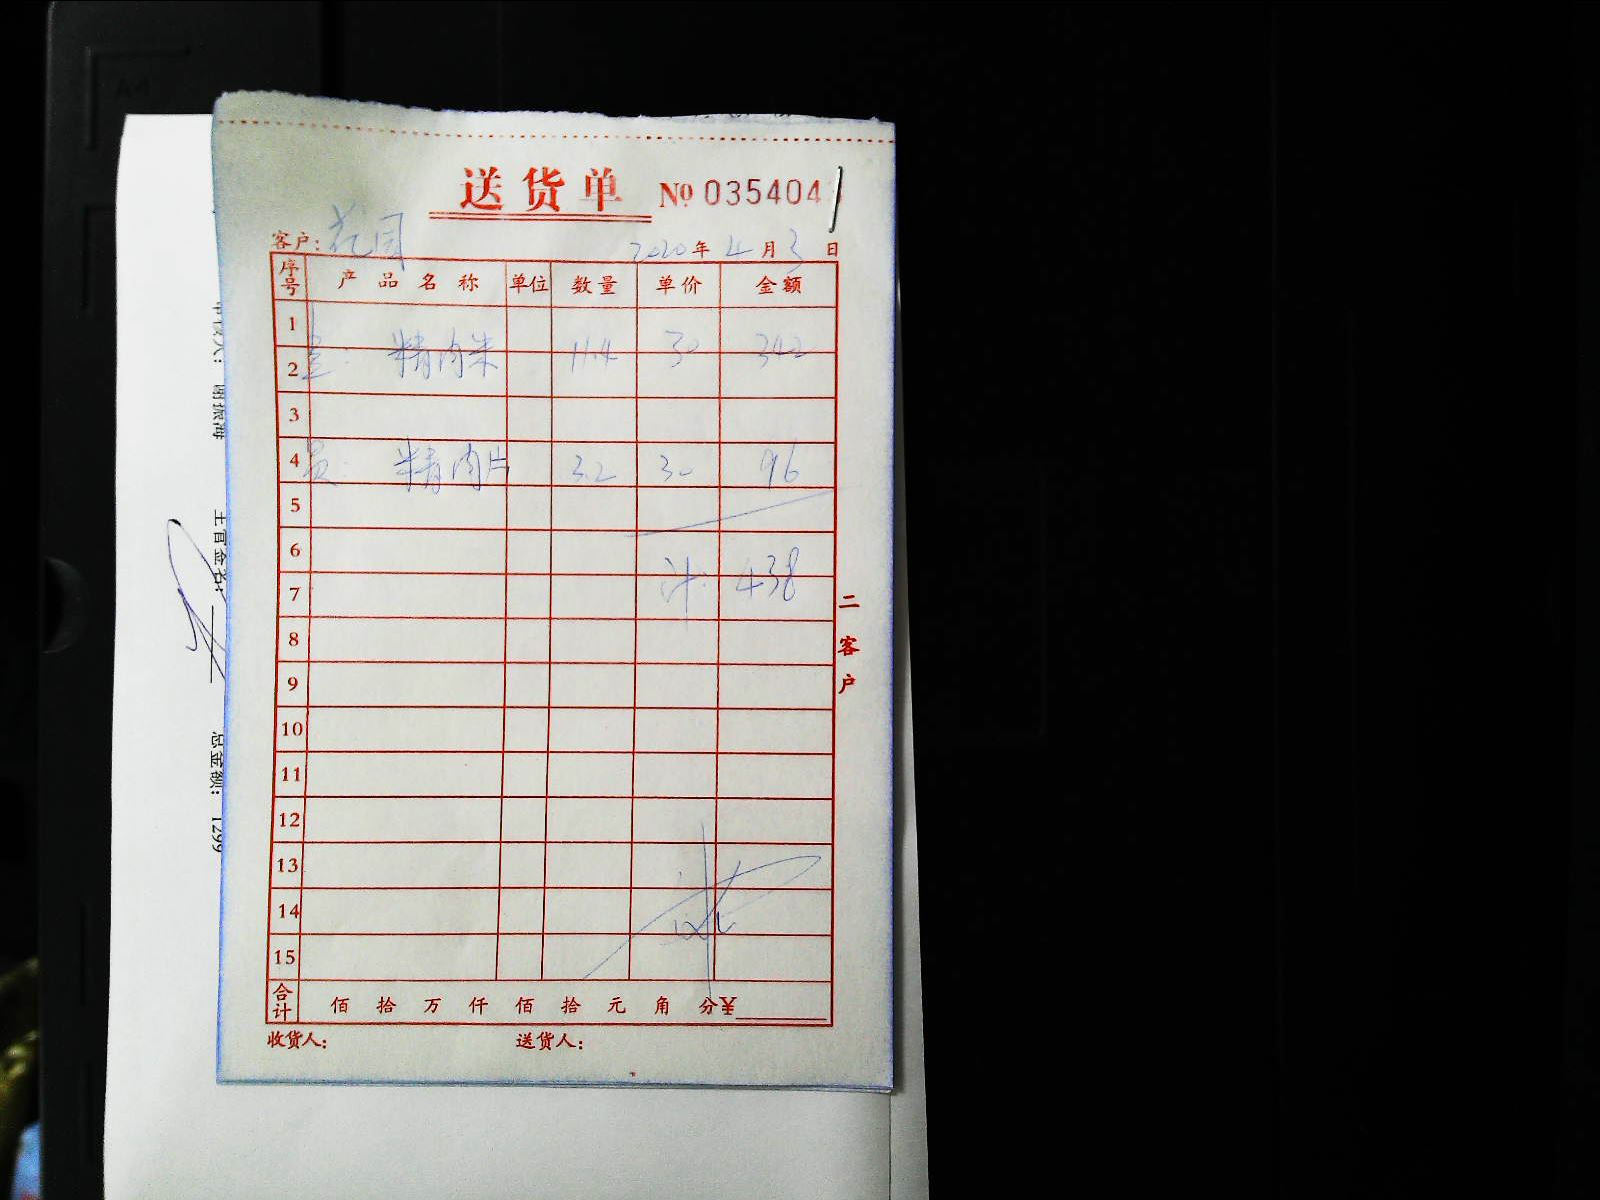 送货单 № 035404
客户：花园 2020年4月3日
序号 产品名称 单位 数量 单价 金额
1
2 精肉米 11.4 30 342
3
4 员： 精肉片 3.2 30 96
5
6
7 计： 438
8
9
10
11
12
13
14
15
合计 佰拾万仟佰拾元角分¥
收货人： 送货人：
二客户
主管签名：
总金额： 1299